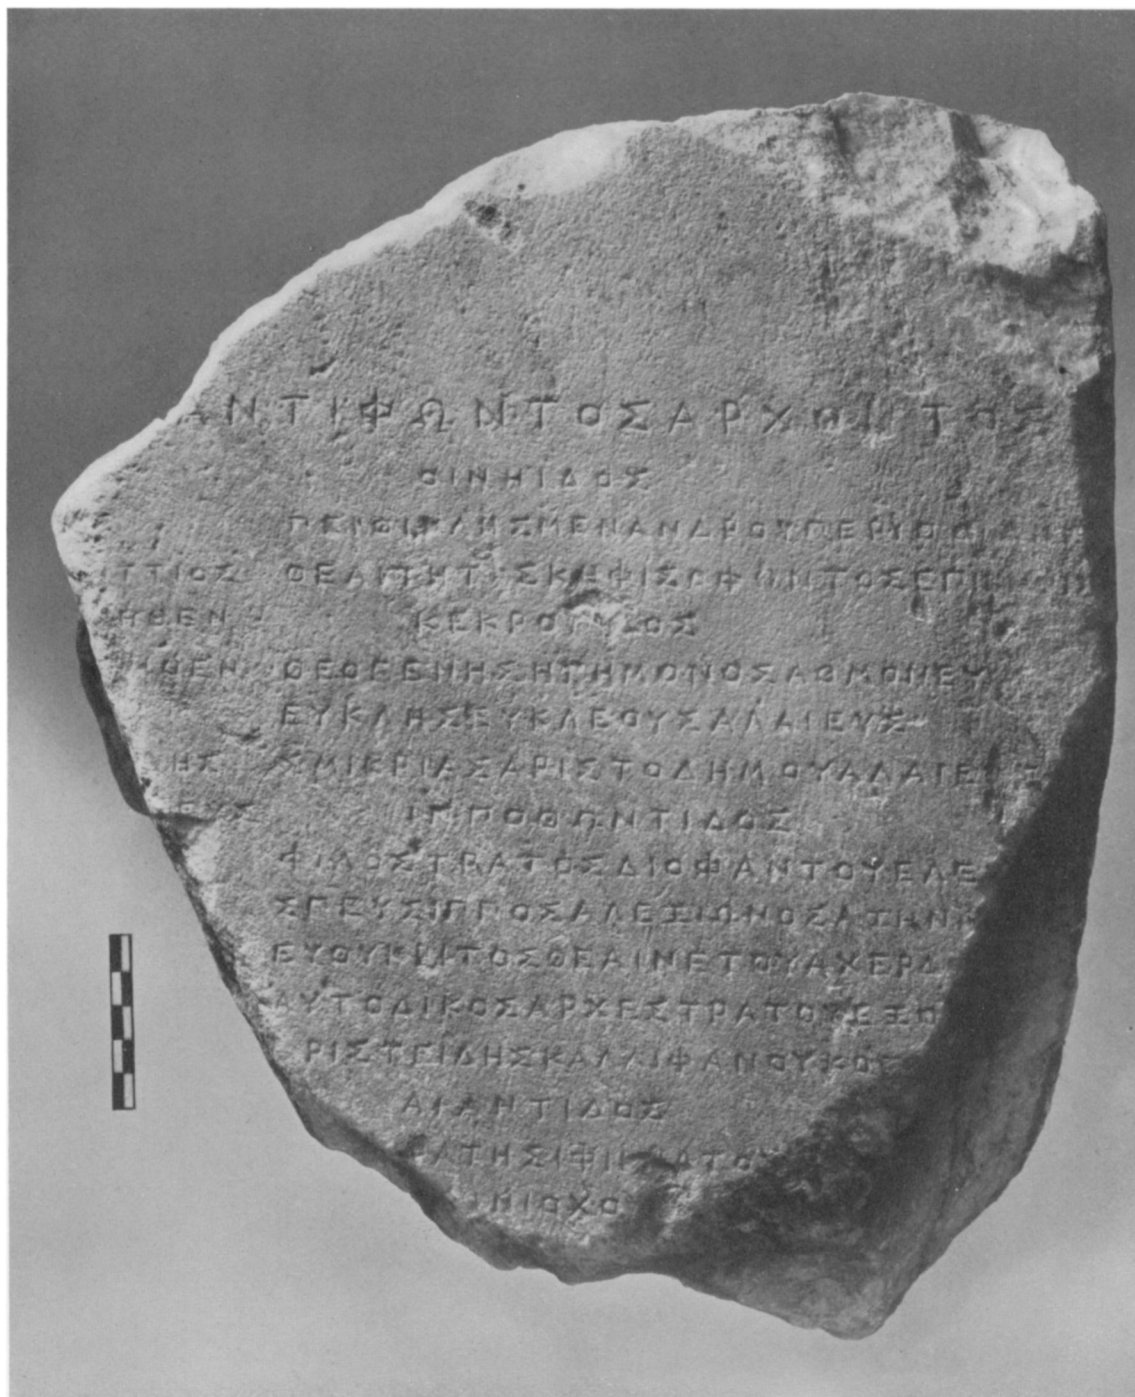 ΑΝΤΙΦΩΝΤΟΣΑΡΧΟΝΤΟΣ
ΟΙΝΗΙΔΟΣ
ΠΕΙΘΙΚΛΗΣΜΕΝΑΝΔΡΟΥΠΕΡΙΘΟΙ
ΤΤΙΟΣ ΘΕΑΙΤΗΤΟΣΚΗΦΙΣΟΦΩΝΤΟΣΕΠΙΚΗ
ΗΘΕΝ ΚΕΚΡΟΠΙΔΟΣ
ΗΘΕΝ ΘΕΟΓΕΝΗΣΗΓΗΜΟΝΟΣΑΘΜΟΝΕΥ
ΕΥΚΛΗΣΕΥΚΛΕΟΥΣΑΛΑΙΕΥΣ
ΗΣ ΣΜΙΚΡΙΑΣΑΡΙΣΤΟΔΗΜΟΥΑΛΑΙΕΥ
ΙΠΠΟΘΩΝΤΙΔΟΣ
ΦΙΛΟΣΤΡΑΤΟΣΔΙΟΦΑΝΤΟΥΕΛΕ
ΣΠΕΥΣΙΠΠΟΣΑΛΕΞΙΩΝΟΣΑΖΗΝ
ΕΥΘΥΚΡΙΤΟΣΘΕΑΙΝΕΤΟΥΑΧΕΡΔ
ΑΥΤΟΔΙΚΟΣΑΡΧΕΣΤΡΑΤΟΥΕΞΟ
ΡΙΣΤΕΙΔΗΣΚΑΛΛΙΦΑΝΟΥΚΟ
ΑΙΑΝΤΙΔΟΣ
ΑΤΗΣΙΦΙΚΡΑΤΟΥ
ΝΙΟΧΟ